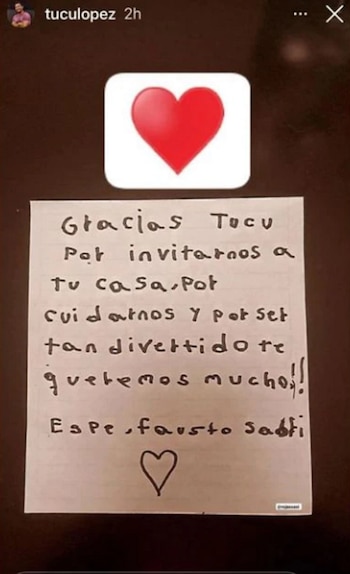 tuculopez 2h
Gracias Tucu
por invitarnos a
tu casa, por
cuidarnos y por ser
tan divertido te
queremos mucho!!
Espe, fausto